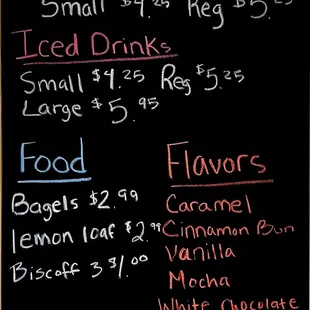 Small $4.25 Reg $5.25
Iced Drinks
Small $4.25 Reg $5.25
Large $5.95
Food
Bagels $2.99
lemon loaf $2.99
Biscoff 3 $1.00
Flavors
Caramel
Cinnamon Bun
Vanilla
Mocha
White Chocolate